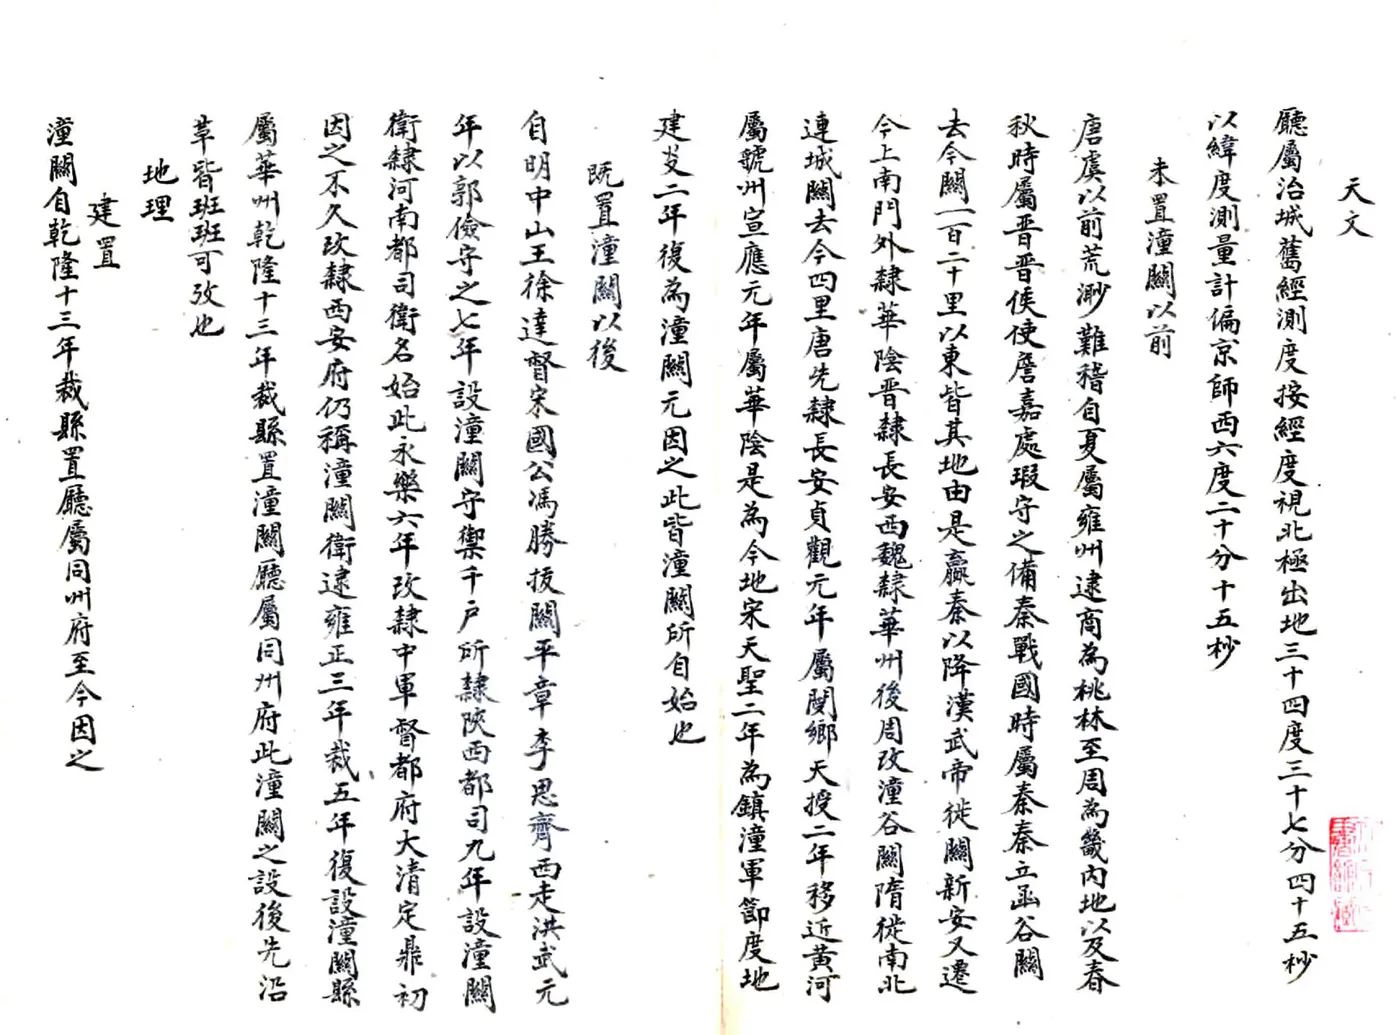 天文
廳屬治城舊經測度按經度視北極出地三十四度三十七分四十五秒
以緯度測量計偏京師西六度二十分十五秒
未置潼關以前
唐虞以前荒渺難稽自夏屬雍州逮商為桃林至周為畿內地以及春
秋時屬晉晉侯使詹嘉處瑕守之備秦戰國時屬秦秦立函谷關
去今關一百二十里以東皆其地由是嬴秦以降漢武帝徙關新安又遷
今上南門外隸華陰晉隸長安西魏隸華州後周改潼谷關隋徙南北
連城關去今四里唐先隸長安貞觀元年屬閿鄉天授二年移近黃河
屬虢州宣應元年屬華陰是為今地宋天聖二年為鎮潼軍節度地
建炎二年復為潼關元因之此皆潼關所自始也
既置潼關以後
自明中山王徐達督宋國公馮勝拔關平章李思齊西走洪武元
年以郭儉守之七年設潼關守禦千戶所隸陝西都司九年設潼關
衛隸河南都司衛名始此永樂六年改隸中軍督都府大清定鼎初
因之不久改隸西安府仍稱潼關衛逮雍正三年裁五年復設潼關縣
屬華州乾隆十三年裁縣置潼關廳屬同州府此潼關之設後先沿
革皆班班可攷也
地理
建置
潼關自乾隆十三年裁縣置廳屬同州府至今因之